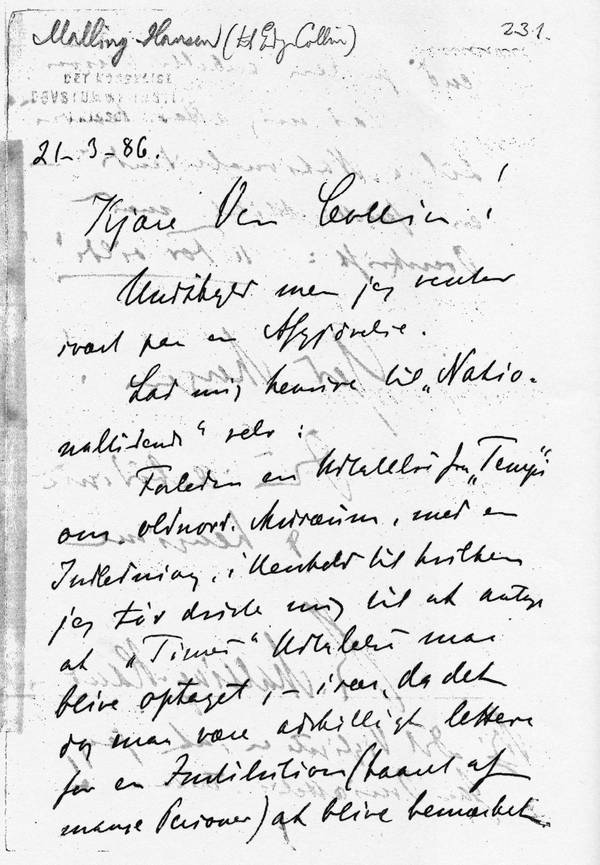 Malling-Hansen (til Edg. Collin)
231.
21-3-86.
Kjære Ven Collin!
Undskyld men jeg venter
svært paa en Afgjörelse.
Lad mig henvise til „Natio-
naltidende" selv:
Forleden en Udtalelse fra „Temps"
om oldnord. Museum, med en
Indledning, i Henhold til hvilken
jeg tör driste mig til at antage
at „Times" Udtalelse maa
blive optaget, – især, da det
dog maa være adskilligt lettere
for en Institution (baaret af
mange Personer) at blive bemærket